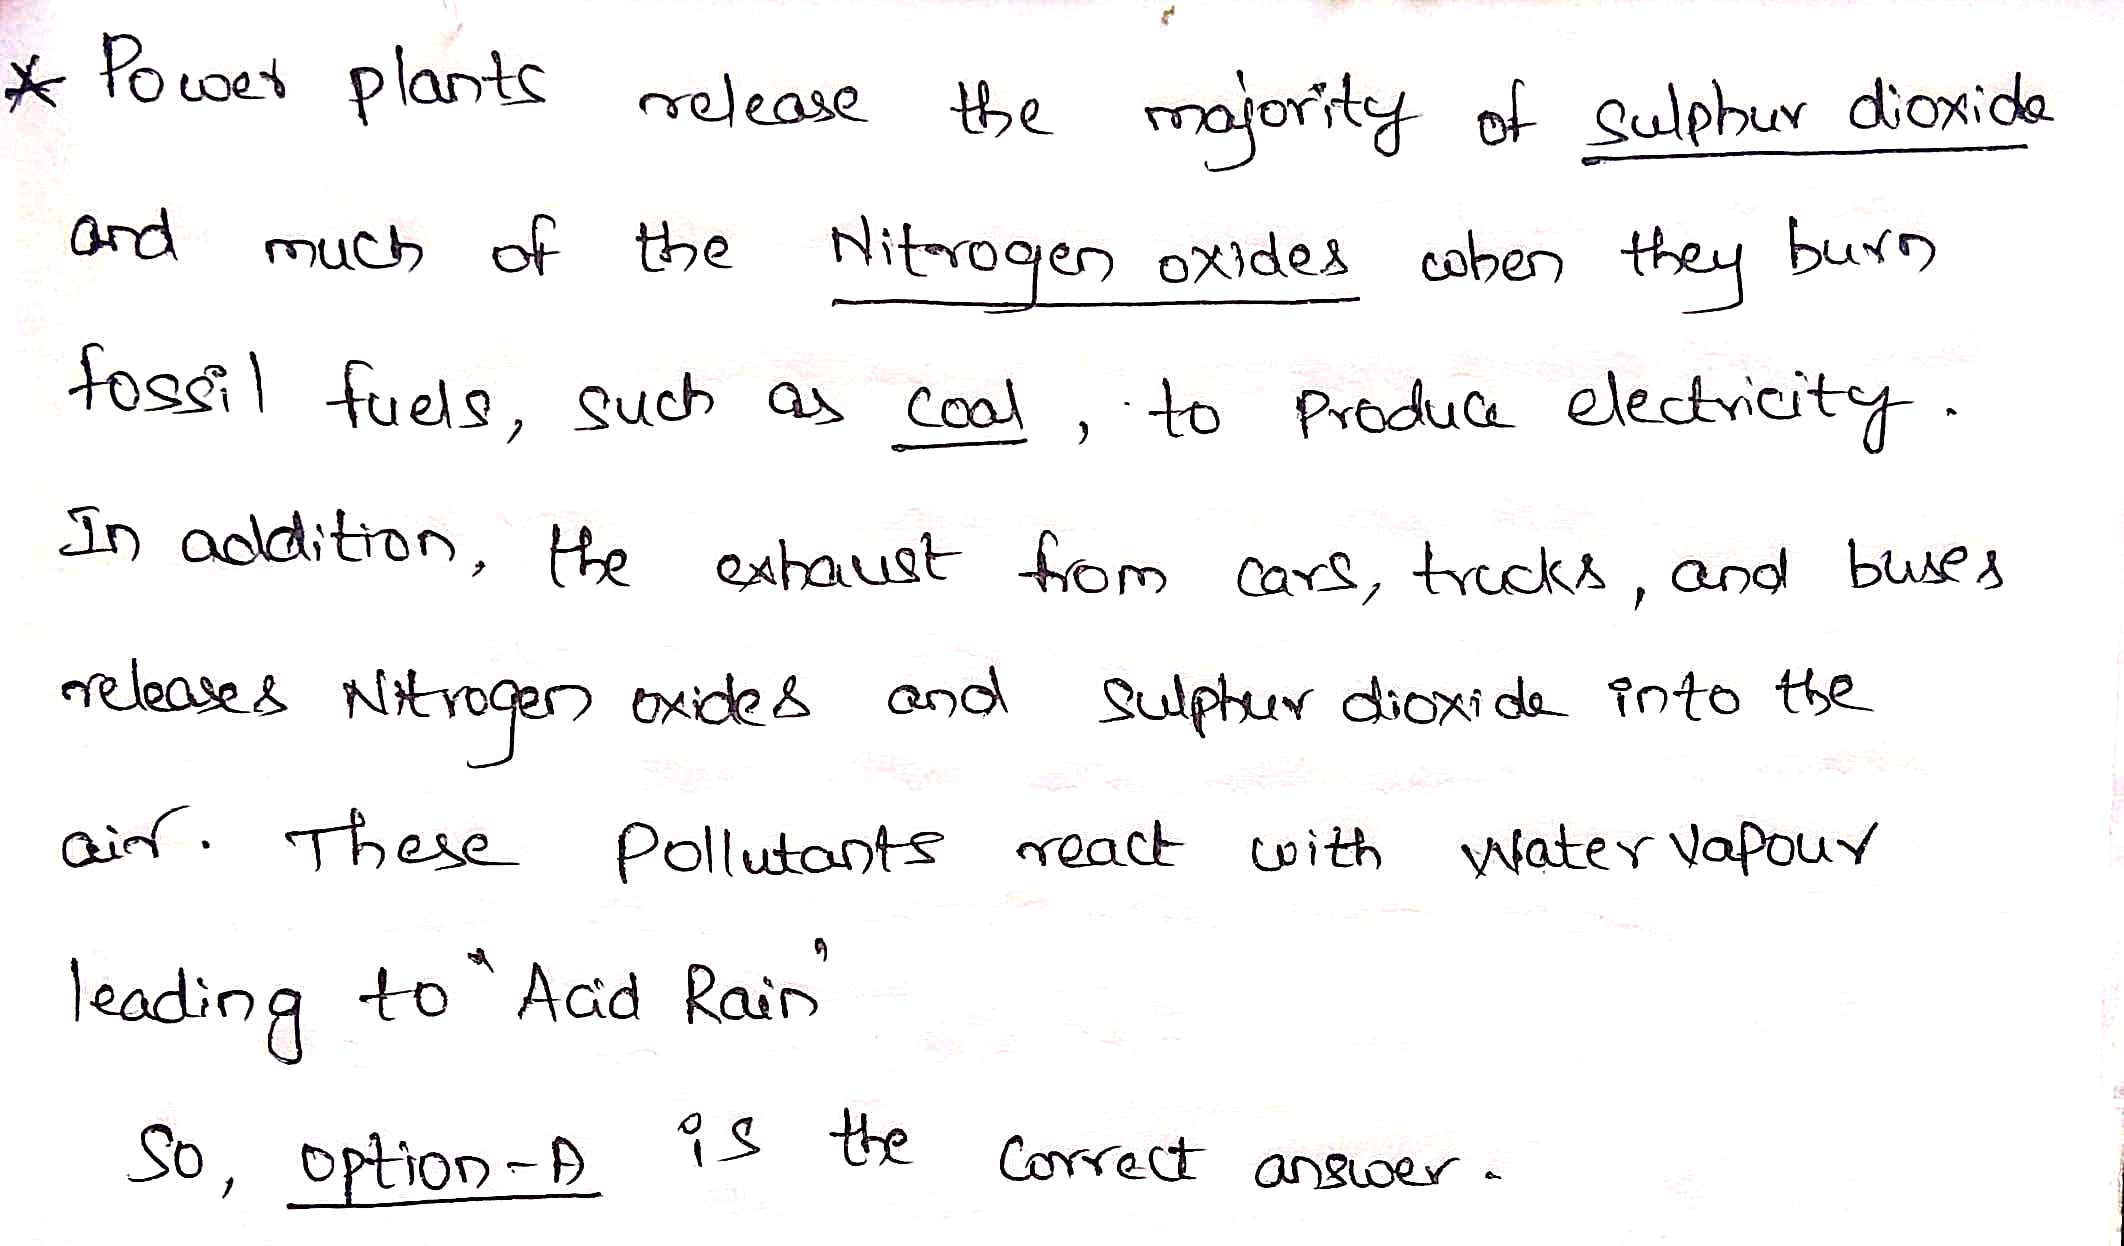 * Power plants release the majority of sulphur dioxide
and much of the Nitrogen oxides when they burn
fossil fuels, such as coal, to produce electricity.
In addition, the exhaust from cars, trucks, and buses
releases Nitrogen oxides and sulphur dioxide into the
air. These pollutants react with water vapour
leading to "Acid Rain"
So, option-A is the correct answer.